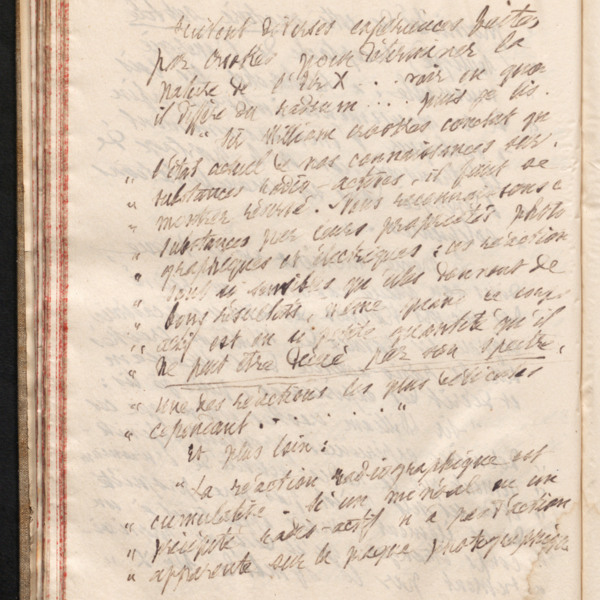 suivent diverses expériences faites
par Crookes pour déterminer la
nature de l'Ur X . . voir en quoi
il diffère du radium . . . puis je lis.
" Sir William Crookes conclut qu
" l'état actuel de nos connaissances sur
" substances radio-actives, il faut se
" montrer réservé. Nous reconnaissons c
" substances par leurs propriétés photo
" graphiques et électriques ; ces réaction
" sont si sensibles qu'elles donnent de
" bons résultats, même quand le corps
" actif est en si petite quantité qu'il
" ne peut être décelé par son spectre,
" une des réactions les plus délicates
" cependant . . . . . . . "
et plus loin :
" La réaction radiographique est
" cumulable. Si un minéral ou un
" précipité radio-actif n'a pas d'action
" apparente sur la plaque photographique